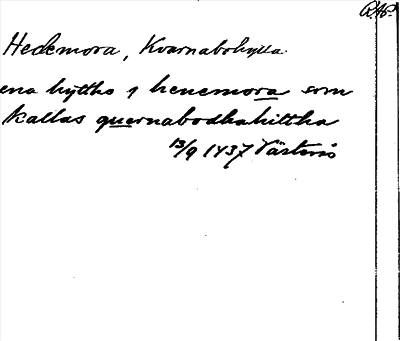 RAp
Hedemora, Kvarnabohytta
ena hytto j henemora som
kallas quernabodhahittha
13/9 1437 Västerås